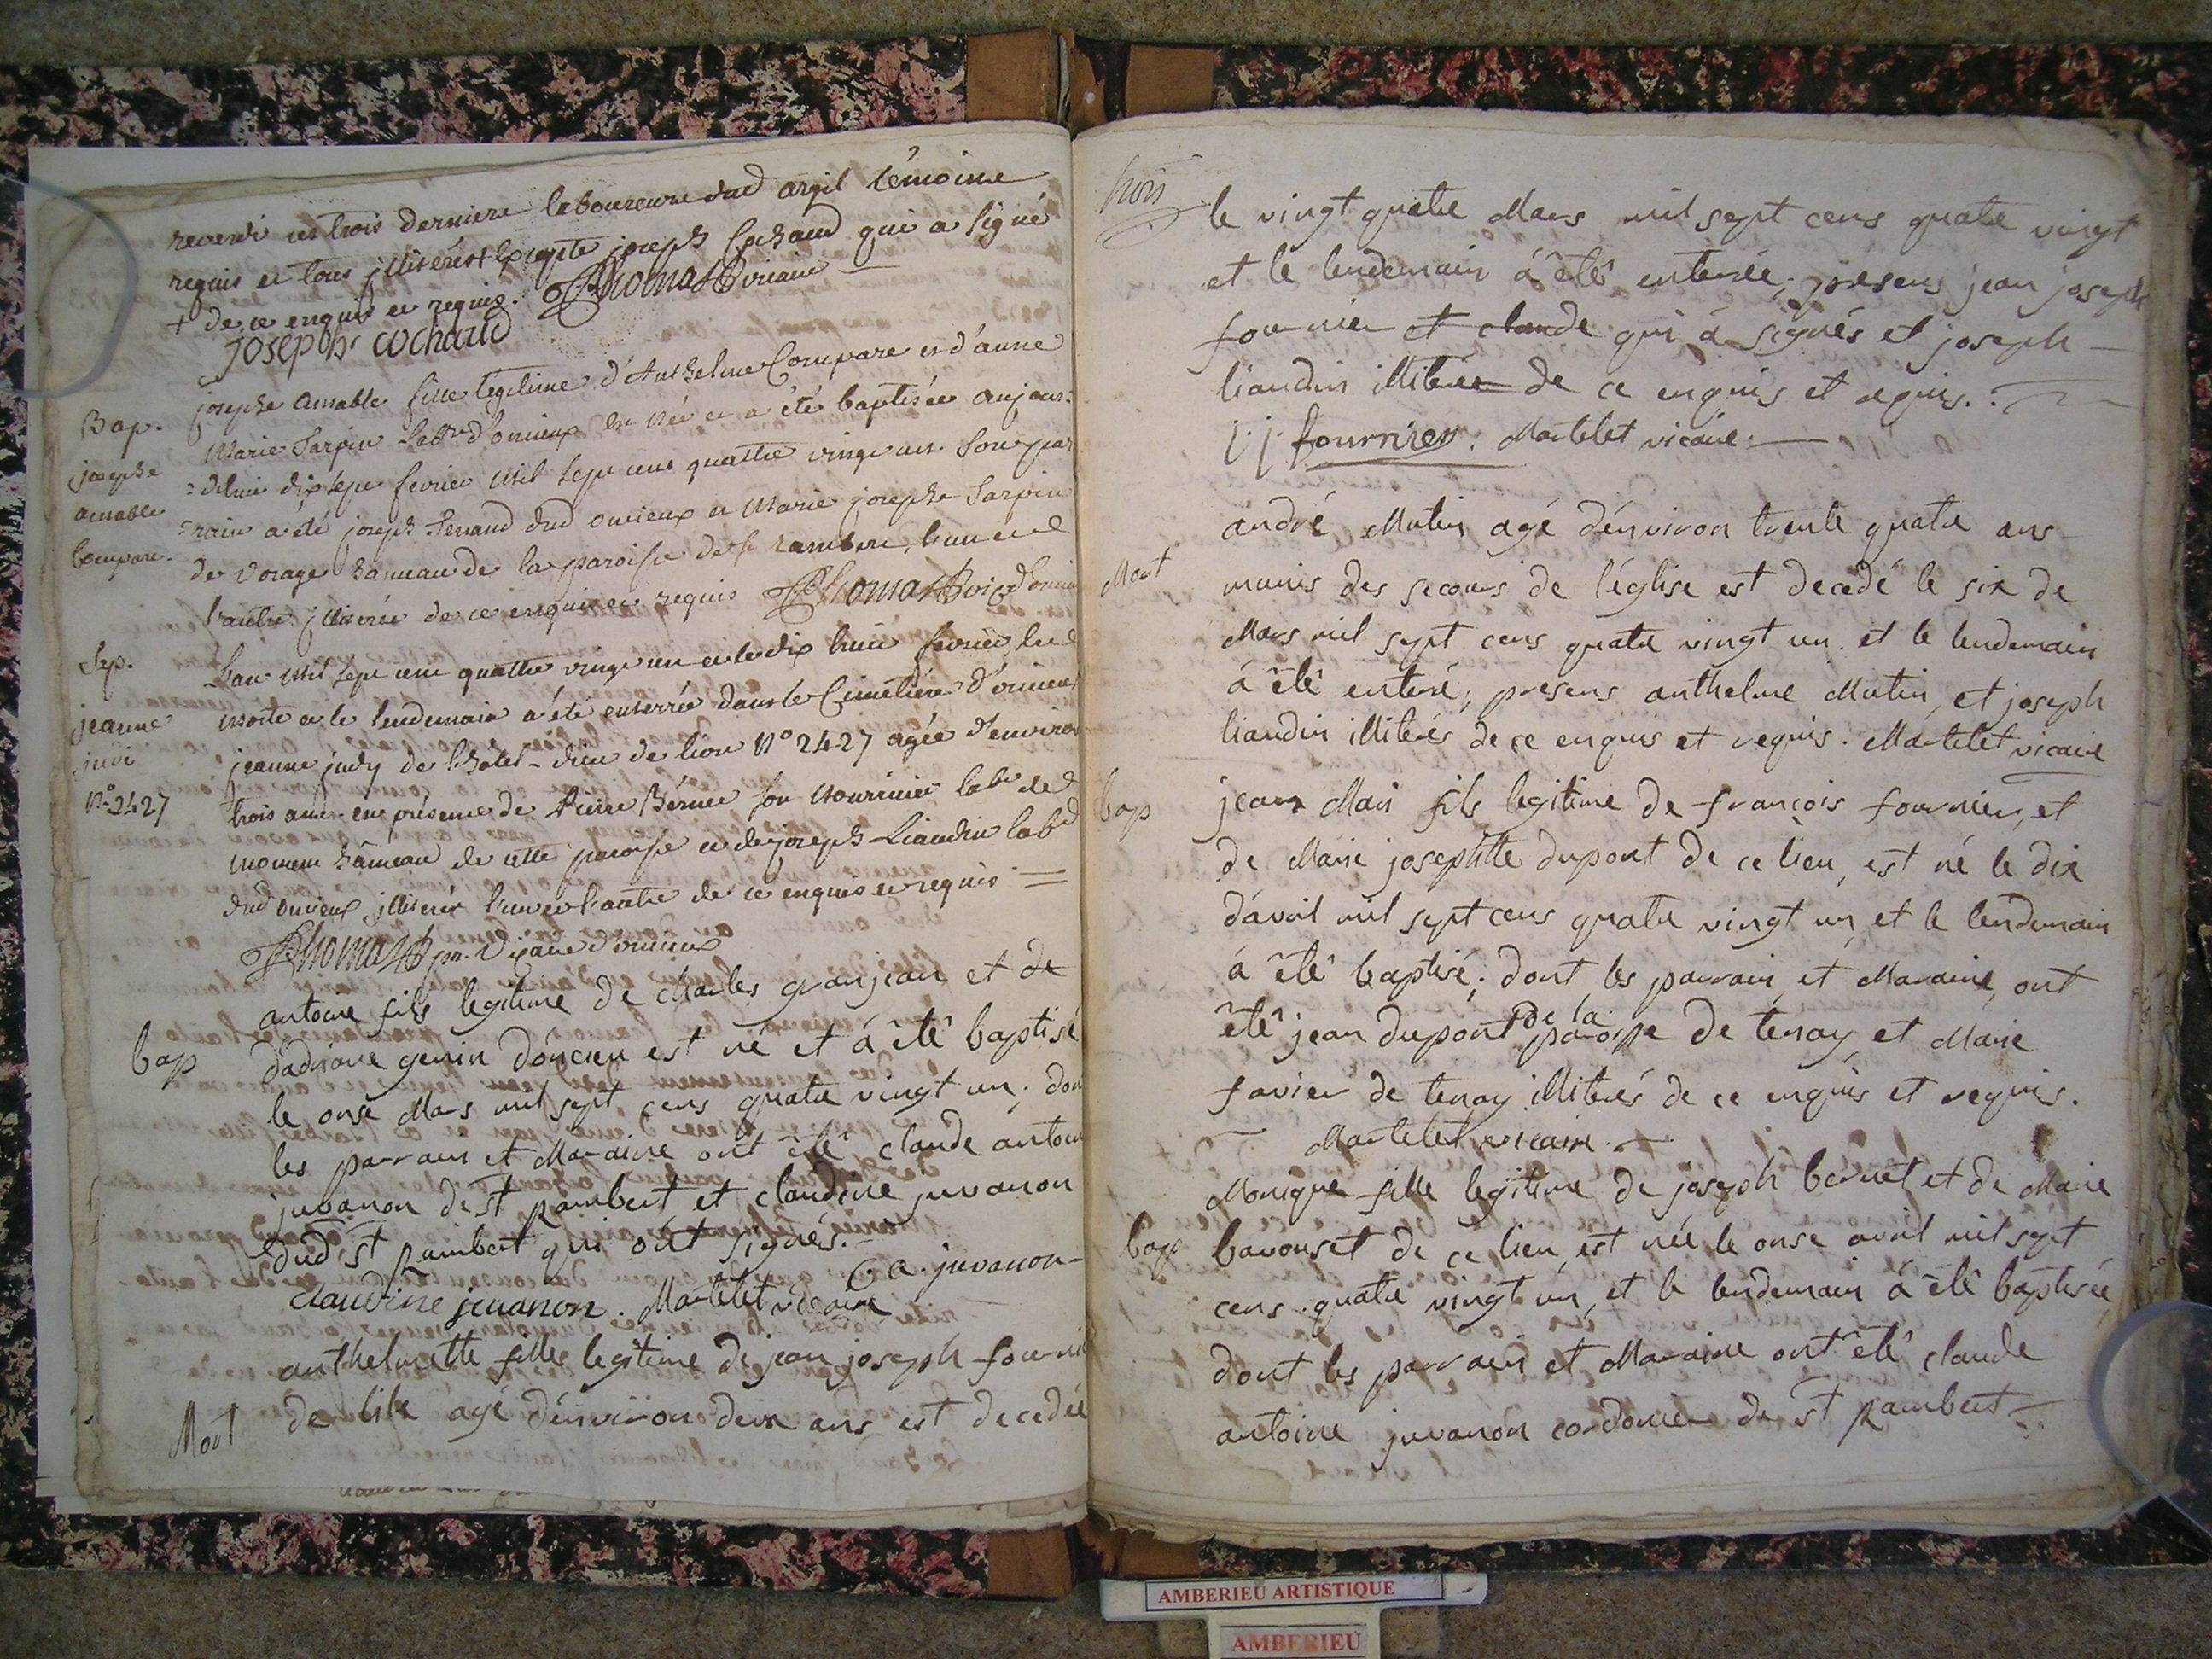 revendi ces trois derniere laboureure dud argil témoins
requis et tous jlliterés + Excepte joseph Cochaud qui a signé
+ de ce enquis et requis. Thomas vicaire
joseph cochaud
Bap.
josephe
amable
Compare.
josephe Amable fille légitime d'Anthelme Compare et d'anne
Marie Sarpin d'oncieux est née et a été baptisée aujour:
=dhui dix sept fevrier mil sept cent quattre vingt un. son par
=rain a été joseph dud oncieux et Marie josephe Sarpin
de vorage hameau de la paroisse de st rambert, l'un et
l'autre jlliterée de ce enquis et requis Thomas vic
Sep.
jeanne
judi
N°2427
L'an mil sept cent quattre vingt un et le dix huit fevrier est
morte et le lendemain a été enterrée dans le Cimetière d'oncieux
jeanne judy de l'hotel-dieu de lion N° 2427 agée d'environ
trois ans en présence de Pierre Bernet son nourricier labr de
hâmeau de cette paroisse et de joseph Liandin lab
dud oncieux jlliterés l'un et l'autre de ce enquis et requis =
Thomas pr. Vicaire d'oncieux
bap
antoine fils legitime de charles granjean et de
dadriane genin d'oncieu est né et á été baptisé
le onse Mars mil sept cens quatre vingt un; don
les parrain et Maraine ont été claude antoin
juvanon de st Rambert, et claudine juvanon
dud st Rambert qui ont signés. C a. juvanon
claudine juvanon. Martelet vicaire
Mort
anthelmette filles legitime de jean joseph fournie
de lile agé d'environ deux ans est decedée
trois
le vingt quatre Mars mil sept cens quatre vingt
et le lendemain á été enterrée; presens jean joseph
fournier et claude qui á signés et joseph
liandin illiterés de ce enquis et requis.
j. j. fournier. Martelet vicaire.
Mort
andré Mutin agé d'environ trente quatre ans
munis des secours de l'église est decedé le six de
Mars mil sept cens quatre vingt un. et le lendemain
á été enterré; presens anthelme Mutin, et joseph
liandin illiterés de ce enquis et requis. Martelet vicaire
bap
jean Mari fils legitime de françois fournier, et
de Marie josephtte dupont de ce lieu, est né le dix
d'avril mil sept cens quatre vingt un, et le lendemain
á été baptisé; dont les parrain, et Maraine, ont
été jean dupont de la paroisse de tenay, et Marie
favier de tenay illiterés de ce enquis et requis.
Martelet vicaire.
bap
Monique fille legitime de joseph bernet et de Marie
bavouset de ce lieu, est née le onse avril mil sept
cens quatre vingt un, et le lendemain á été baptisée
dont les parrain et Maraine ont été claude
antoine juvanon cordonier de st Rambert
AMBERIEU ARTISTIQUE
AMBERIEU